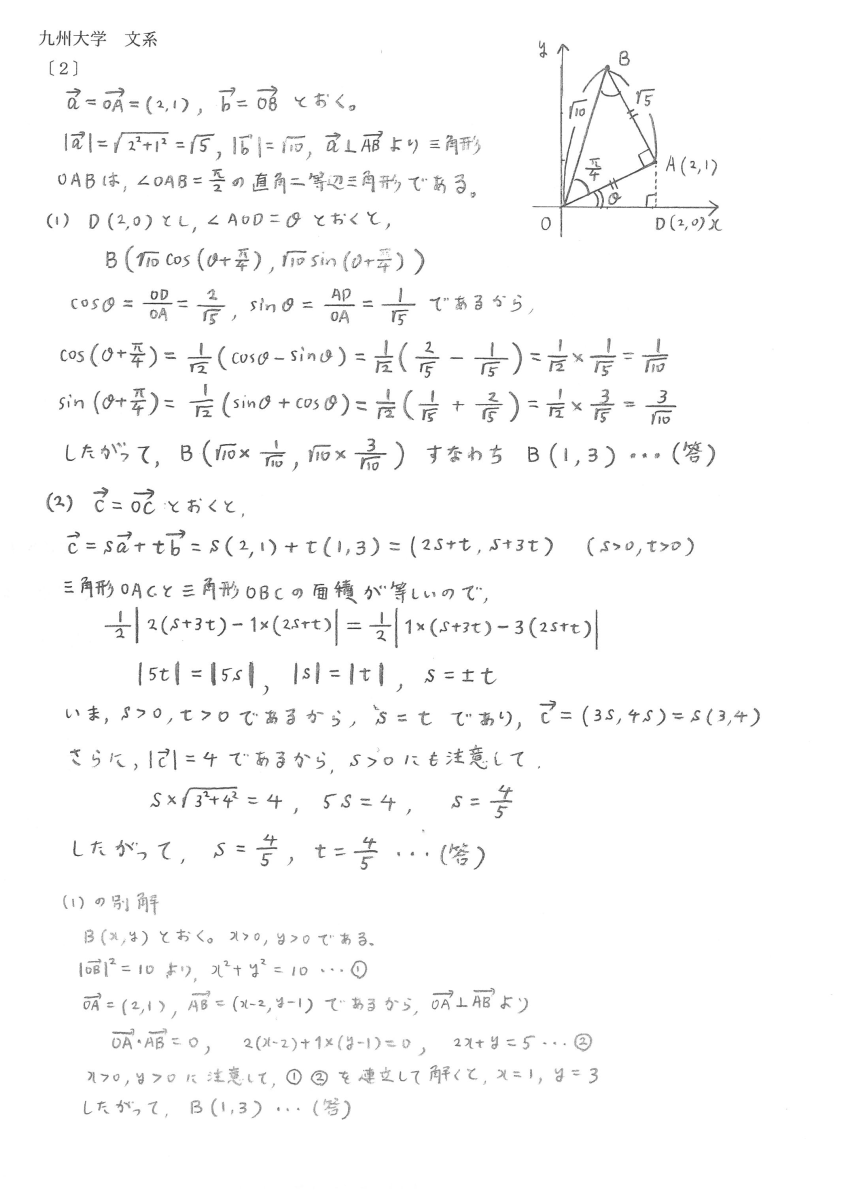 九州大学 文系
〔2〕
$\vec{a}=\overrightarrow{OA}=(2,1)$, $\vec{b}=\overrightarrow{OB}$ とおく。
$|\vec{a}|=\sqrt{2^2+1^2}=\sqrt{5}$, $|\vec{b}|=\sqrt{10}$, $\vec{a}\perp\overrightarrow{AB}$ より三角形
OABは, ∠OAB=$\frac{\pi}{2}$の直角二等辺三角形である。
y
B
$\sqrt{10}$
$\sqrt{5}$
$\frac{\pi}{4}$
A(2,1)
θ
O
D(2,0)
x
(1) D(2,0)とし, ∠AOD=θ とおくと,
B($\sqrt{10}\cos(θ+\frac{\pi}{4})$, $\sqrt{10}\sin(θ+\frac{\pi}{4})$)
$\cosθ=\frac{OD}{OA}=\frac{2}{\sqrt{5}}$, $\sinθ=\frac{AD}{OA}=\frac{1}{\sqrt{5}}$ であるから,
$\cos(θ+\frac{\pi}{4})=\frac{1}{\sqrt{2}}(\cosθ-\sinθ)=\frac{1}{\sqrt{2}}(\frac{2}{\sqrt{5}}-\frac{1}{\sqrt{5}})=\frac{1}{\sqrt{2}}×\frac{1}{\sqrt{5}}=\frac{1}{\sqrt{10}}$
$\sin(θ+\frac{\pi}{4})=\frac{1}{\sqrt{2}}(\sinθ+\cosθ)=\frac{1}{\sqrt{2}}(\frac{1}{\sqrt{5}}+\frac{2}{\sqrt{5}})=\frac{1}{\sqrt{2}}×\frac{3}{\sqrt{5}}=\frac{3}{\sqrt{10}}$
したがって, B($\sqrt{10}×\frac{1}{\sqrt{10}}$, $\sqrt{10}×\frac{3}{\sqrt{10}}$) すなわち B(1,3) ・・・(答)
(2) $\vec{c}=\overrightarrow{OC}$ とおくと,
$\vec{c}=s\vec{a}+t\vec{b}=s(2,1)+t(1,3)=(2s+t, s+3t)$ (s>0, t>0)
三角形OACと三角形OBCの面積が等しいので,
$\frac{1}{2}|2(s+3t)-1×(2s+t)|=\frac{1}{2}|1×(s+3t)-3(2s+t)|$
|5t|=|5s|, |s|=|t|, s=±t
いま, s>0, t>0であるから, s=t であり, $\vec{c}=(3s,4s)=s(3,4)$
さらに, $|\vec{c}|=4$であるから, s>0にも注意して,
$s×\sqrt{3^2+4^2}=4$, 5s=4, $s=\frac{4}{5}$
したがって, $s=\frac{4}{5}$, $t=\frac{4}{5}$ ・・・(答)
(1)の別解
B(x,y)とおく。x>0, y>0である。
$|\overrightarrow{OB}|^2=10$ より, $x^2+y^2=10$ ・・・①
$\overrightarrow{OA}=(2,1)$, $\overrightarrow{AB}=(x-2,y-1)$ であるから, $\overrightarrow{OA}\perp\overrightarrow{AB}$ より
$\overrightarrow{OA}\cdot\overrightarrow{AB}=0$, 2(x-2)+1×(y-1)=0, 2x+y=5 ・・・②
x>0, y>0に注意して, ①②を連立して解くと, x=1, y=3
したがって, B(1,3) ・・・(答)